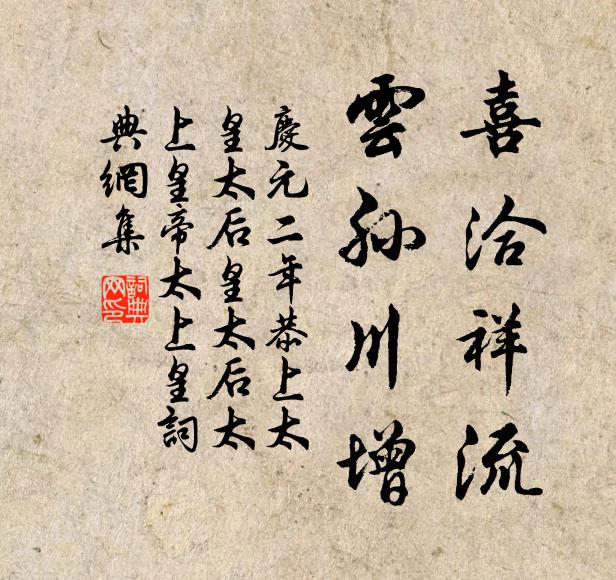 喜洽祥流
雲孙川增
慶元二年恭上太
皇太后皇太后太
上皇帝太上皇詞
典網集
詞典網印